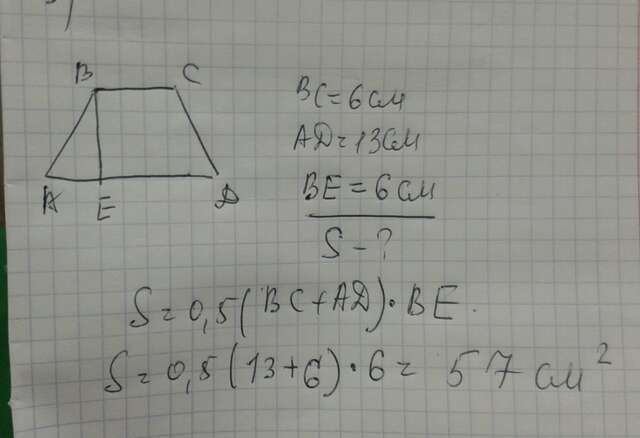 B C
A E D
BC=6см
AD=13см
BE=6см
S-?
S=0,5(BC+AD)·BE.
S=0,5(13+6)·6=57см²